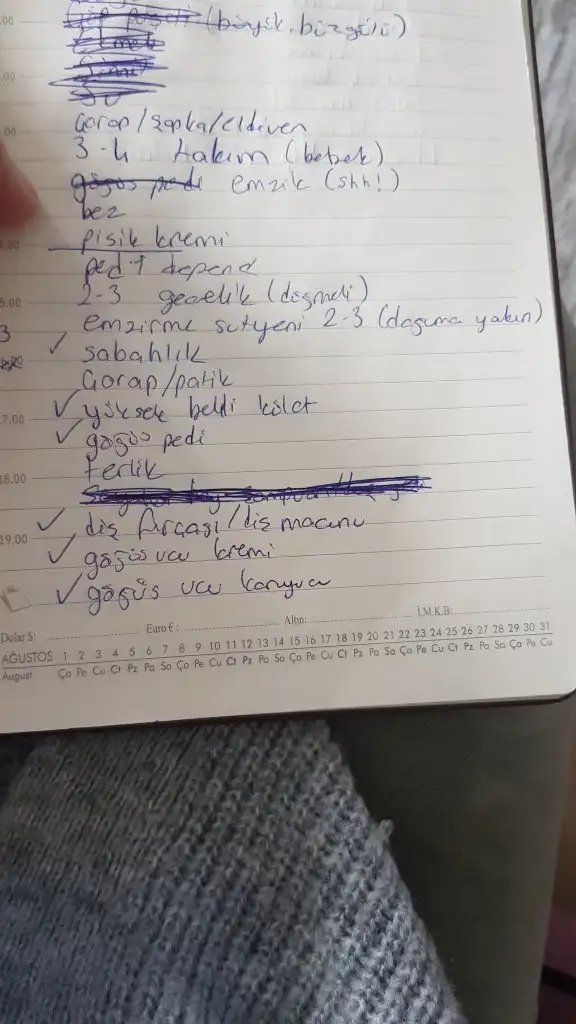 .00 (büyük, büzgülü)
.00
00 Çorap/şapka/eldiven
3-4 takım (bebek)
göğüs pedi emzik (shh!)
bez
.00 pişik kremi
ped + depend
5.00 2-3 gecelik (düğmeli)
3 emzirme sütyeni 2-3 (doğuma yakın)
✓ sabahlık
Çorap/patik
7.00 ✓ yüksek belli külot
✓ göğüs pedi
terlik
18.00
✓ diş fırçası/diş macunu
19.00 ✓ göğüs ucu kremi
✓ göğüs ucu koruyucu
Dolar $: Euro €: Altın: İ.M.K.B.:
AĞUSTOS 1 2 3 4 5 6 7 8 9 10 11 12 13 14 15 16 17 18 19 20 21 22 23 24 25 26 27 28 29 30 31
August Ça Pe Cu Ct Pz Pa Sa Ça Pe Cu Ct Pz Pa Sa Ça Pe Cu Ct Pz Pa Sa Ça Pe Cu Ct Pz Pa Sa Ça Pe Cu